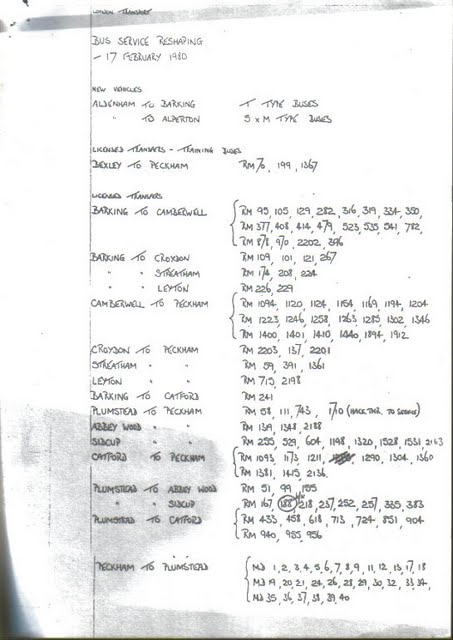 LONDON TRANSPORT
BUS SERVICE RESHAPING
- 17 FEBRUARY 1980
NEW VEHICLES
ALDENHAM TO BARKING T TYPE BUSES
" TO ALPERTON 5 x M TYPE BUSES
LICENSED TRANSFERS - TRAINING BUSES
BEXLEY TO PECKHAM RM 70, 199, 1367
LICENSED TRANSFERS
BARKING TO CAMBERWELL RM 95, 105, 129, 282, 316, 319, 334, 350,
RM 377, 408, 414, 479, 523, 535, 541, 782,
RM 878, 970, 2202, 396
BARKING TO CROYDON RM 109, 101, 121, 267
" " STREATHAM RM 174, 208, 224
" " LEYTON RM 226, 229
CAMBERWELL TO PECKHAM RM 1094, 1120, 1124, 1154, 1169, 1194, 1204
RM 1223, 1246, 1258, 1263, 1285, 1302, 1346
RM 1400, 1401, 1410, 1440, 1894, 1912
CROYDON TO PECKHAM RM 2203, 137, 2201
STREATHAM " " RM 59, 391, 1361
LEYTON " " RM 715, 2198
BARKING TO CATFORD RM 241
PLUMSTEAD TO PECKHAM RM 58, 111, 743, 1710 TO
ABBEY WOOD " " RM 139, 1348, 2188
SIDCUP " " RM 255, 529, 604, 1198, 1320, 1528, 1531, 2163
CATFORD TO PECKHAM RM 1093, 1173, 1211, 1290, 1304, 1360
RM 1381, 1415, 2136
PLUMSTEAD TO ABBEY WOOD RM 51, 99, 155
" " SIDCUP RM 167, 188, 218, 237, 252, 257, 335, 383
PLUMSTEAD TO CATFORD RM 433, 458, 618, 713, 724, 851, 904
RM 940, 955, 956
PECKHAM TO PLUMSTEAD MD 1, 2, 3, 4, 5, 6, 7, 8, 9, 11, 12, 13, 17, 18
MD 19, 20, 21, 24, 26, 28, 29, 30, 32, 33, 34,
MD 35, 36, 37, 38, 39, 40